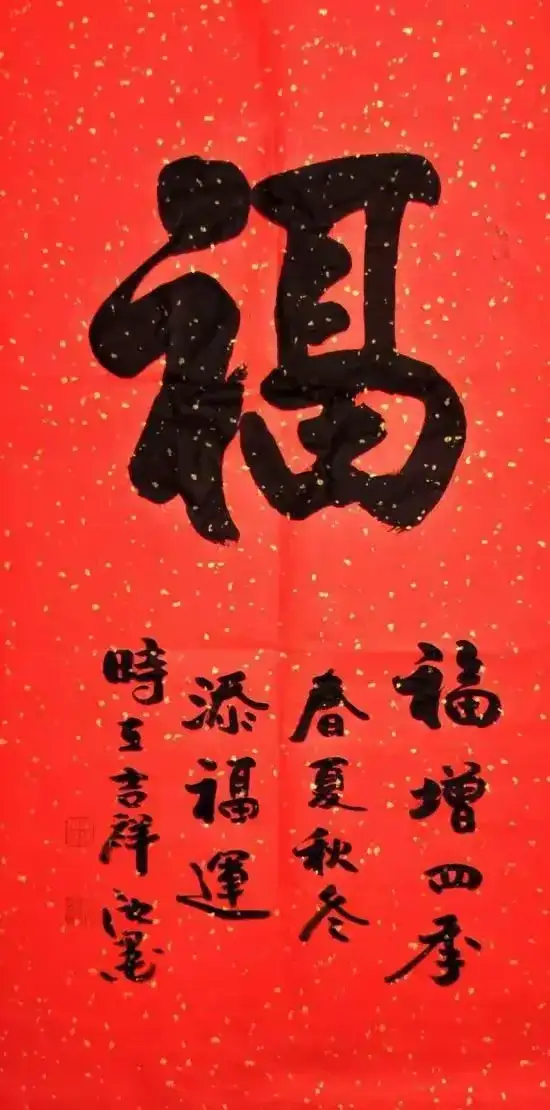 福
福增四季
春夏秋冬
添福運
時吉祥